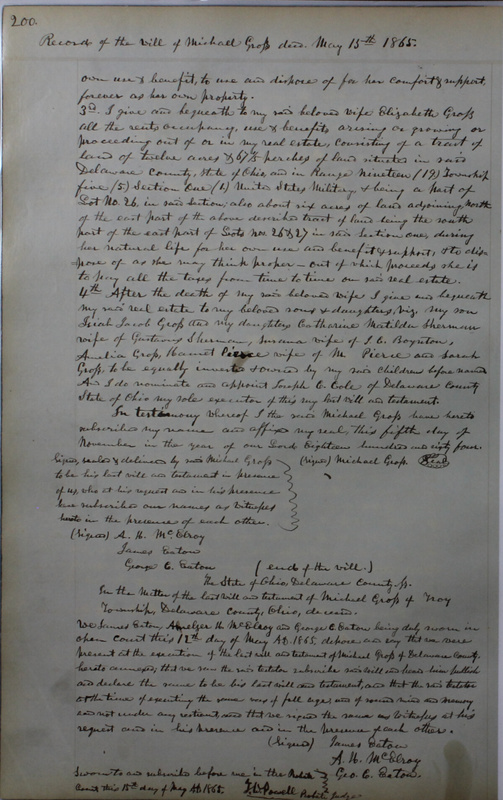 200.
Record of the will of Michael Groß decd. May 15th 1865.
own use & benefit, to use and dispose of for her comfort & support,
forever as her own property.
3d. I give and bequeath to my said beloved wife Elizabeth Groß
all the rents, occupancy, use & benefits arising or growing or
proceeding out of or in my real estate, consisting of a tract of
land of twelve acres & perches of land situated in said
Delaware County, State of Ohio, and in Range Nineteen (19) Township
five (5) Section One (1) United States Military & being a part of
Lot No. 26. in said Section, also about six acres of land adjoining North
of the east part of the above described tract of land being the south
part of the east part of Lots Nos 26 & 27 in said Section one, during
her natural life for her own use and benefit & support, & to dis-
pose of as she may think proper - out of which proceeds she is
to pay all the taxes from time to time on said real estate.
4th After the death of my said beloved wife I give and bequeath
my said real estate to my beloved sons & daughters, viz, my son
Jacob Groß and my daughters Catharine Matilda Sherman
wife of Sherman, Susana wife of J. C. Boynton,
Amelia Groß, Harriet Pierce wife of M. Pierce and Sarah
Groß, to be equally & owned by my said children before named
And I do nominate and appoint Joseph C. Cole of Delaware County
State of Ohio my sole executor of this my last will and testament.
In testimony whereof I the said Michael Groß have hereto
subscribed my name and affixed my seal, this fifth day of
November in the year of our Lord Eighteen hundred and sixty four.
Signed, sealed & delivered by said Michael Groß (Signed) Michael Groß (Seal)
to be his last will and testament in presence
of us, who at his request and in his presence
have subscribed our names as witnesses
hereto in the presence of each other.
(Signed) A. H. McElroy
James Eaton
George C. Eaton (end of the will.)
The State of Ohio, Delaware County, ß.
In the Matter of the last will and testament of Michael Groß of Troy
Township, Delaware County, Ohio, deceased.
We James Eaton, H McElroy and George C. Eaton being duly sworn in
open Court this 12th day of May AD. 1865, depose and say that we were
present at the execution of the last will and testament of Michael Groß of Delaware County,
hereto annexed, that we saw the said testator subscribe said will and heard him publish
and declare the same to be his last will and testament, and that the said testator
at the time of executing the same was of full age, and of sound mind and memory
and not under any restraint, and that we signed the same as Witnesses at his
request and in his presence and in the presence of each other.
(Signed) James Eaton
A. H. McElroy
Geo. C. Eaton
Sworn to and subscribed before me in the Probate
Court this 15th day of May AD. 1865. Powell Probate Judge